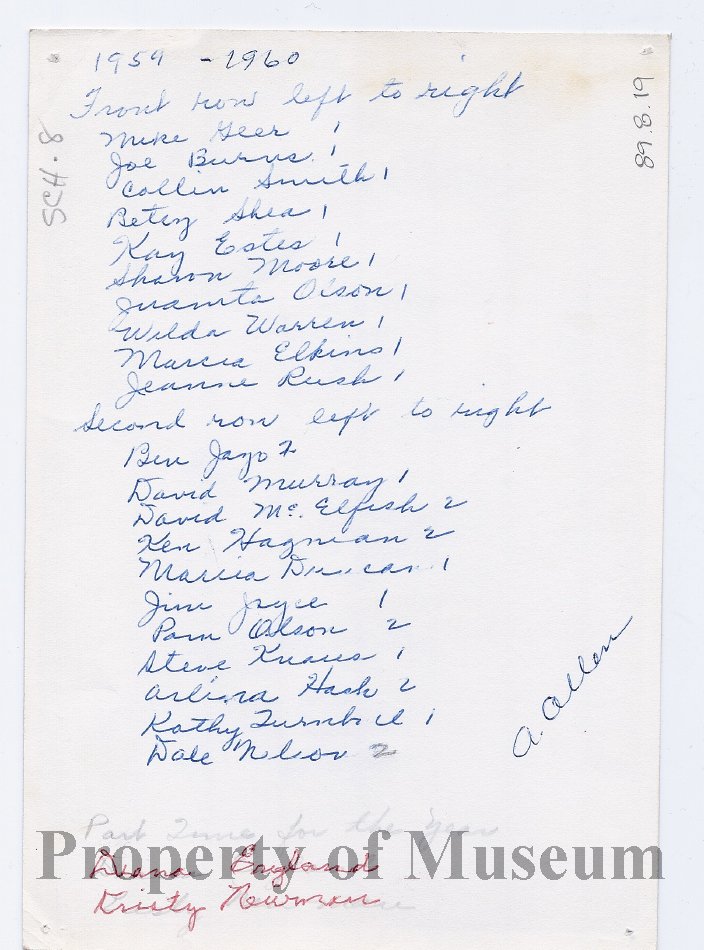 1959 - 1960
Front row left to right
Mike Geer 1
Joe Burns 1
Collin Smith 1
Betsy Shea 1
Kay Estes 1
Sharon Moore 1
Juanita Olson 1
Wilda Warren 1
Marcia Elkins 1
Jeanne Rush 1
Second row left to right
Ben Jago 2
David Murray 1
David Mc. Elfish 2
Ken Hagman 2
Marcia Duncan 1
Jim Joyce 1
Pam Olson 2
Steve Knaus 1
Hack 2
Kathy Turnbull 1
Dale Nelson 2
A. Allen
SCH-8
89.8.19
Part Time for the Year
Diana England
Kristy Newman
Property of Museum